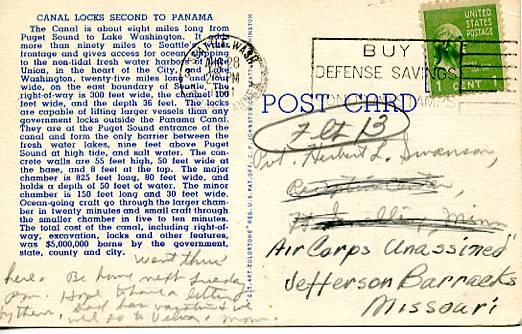 CANAL LOCKS SECOND TO PANAMA
The Canal is about eight miles long from
Puget Sound to Lake Washington. It
more than ninety miles to Seattle's
frontage and gives access for ocean shipping
to the non-tidal fresh water harbors of
Union, in the heart of the City. Lake
Washington, twenty-five miles long and four
wide, on the east boundary of Seattle. The
right-of-way is 300 feet wide, the channel 100
feet wide, and the depth 36 feet. The locks
are capable of lifting larger vessels than any
government locks outside the Panama Canal.
They are at the Puget Sound entrance of the
canal and form the only barrier between the
fresh water lakes, nine feet above Puget
Sound at high tide, and salt water. The con-
crete walls are 55 feet high, 50 feet wide at
the base, and 8 feet at the top. The major
chamber is 825 feet long, 80 feet wide, and
holds a depth of 50 feet of water. The minor
chamber is 150 feet long and 30 feet wide.
Ocean-going craft go through the larger cham-
ber in twenty minutes and small craft through
the smaller chamber in five to ten minutes.
The total cost of the canal, including right-of-
way, excavation, locks and other features,
was $5,000,000 borne by the government,
state, county and city.
Went thru
here. Be home next Tuesday
pm. Hope to have a letter
by then.
will go to Velva, mom.
SEATTLE, WASH.
28
PM
BUY
DEFENSE SAVINGS
BONDS AND STAMPS
UNITED
STATES
POSTAGE
1 CENT
POST CARD
Flt 13
Pvt. Herbert L. Swanson,
Reception Center,
Minn
Air Corps Unassined
Jefferson Barracks
Missouri